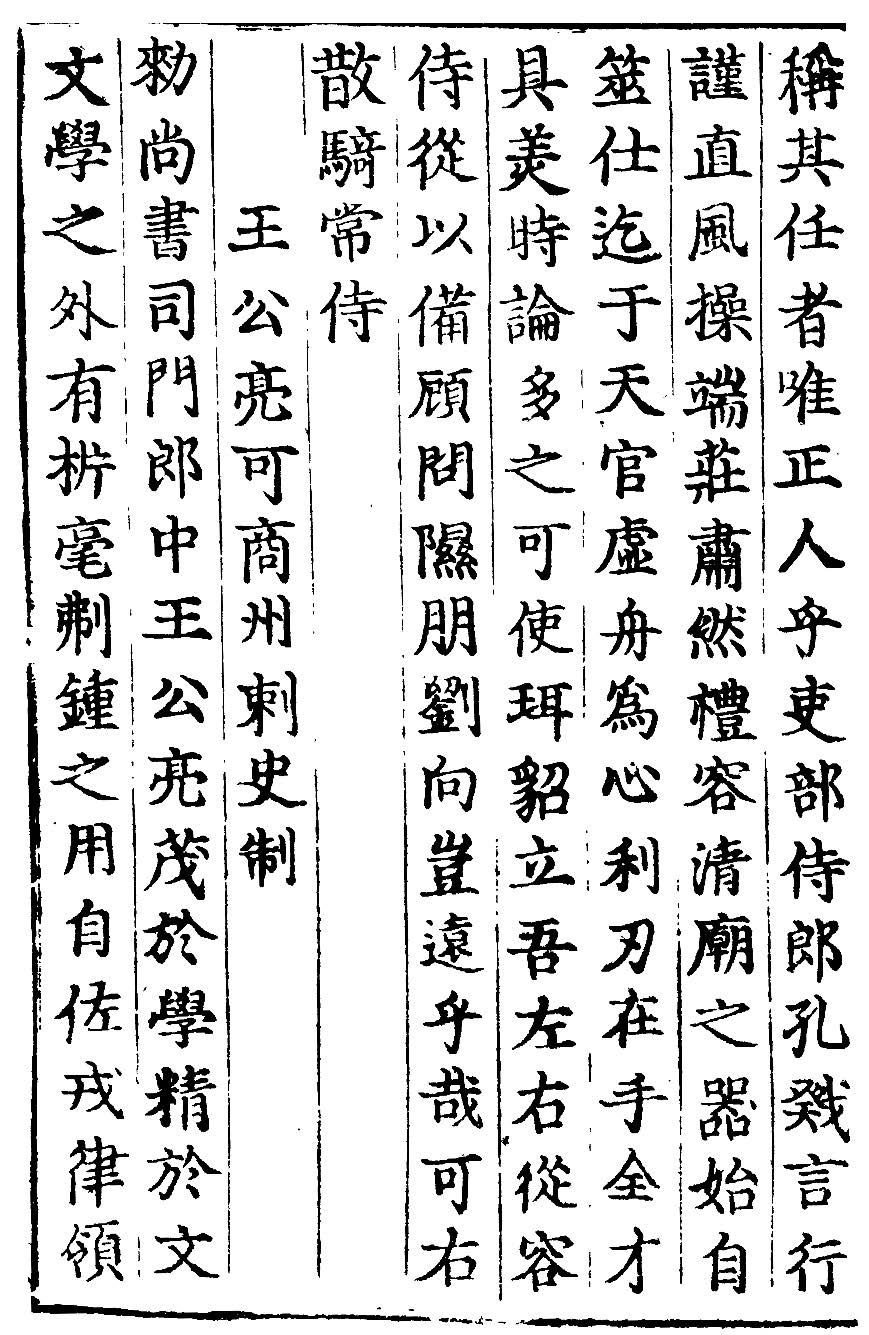 稱其任者唯正人乎吏部侍郎孔戣言行
謹直風操端莊肅然禮容清廟之器始自
筮仕迄于天官虛舟爲心利刃在手全才
具美時論多之可使珥貂立吾左右從容
侍從以備顧問隰朋劉向豈遠乎哉可右
散騎常侍
王公亮可商州刺史制
勑尚書司門郎中王公亮茂於學精於文
文學之外有析毫剸鍾之用自佐戎律領